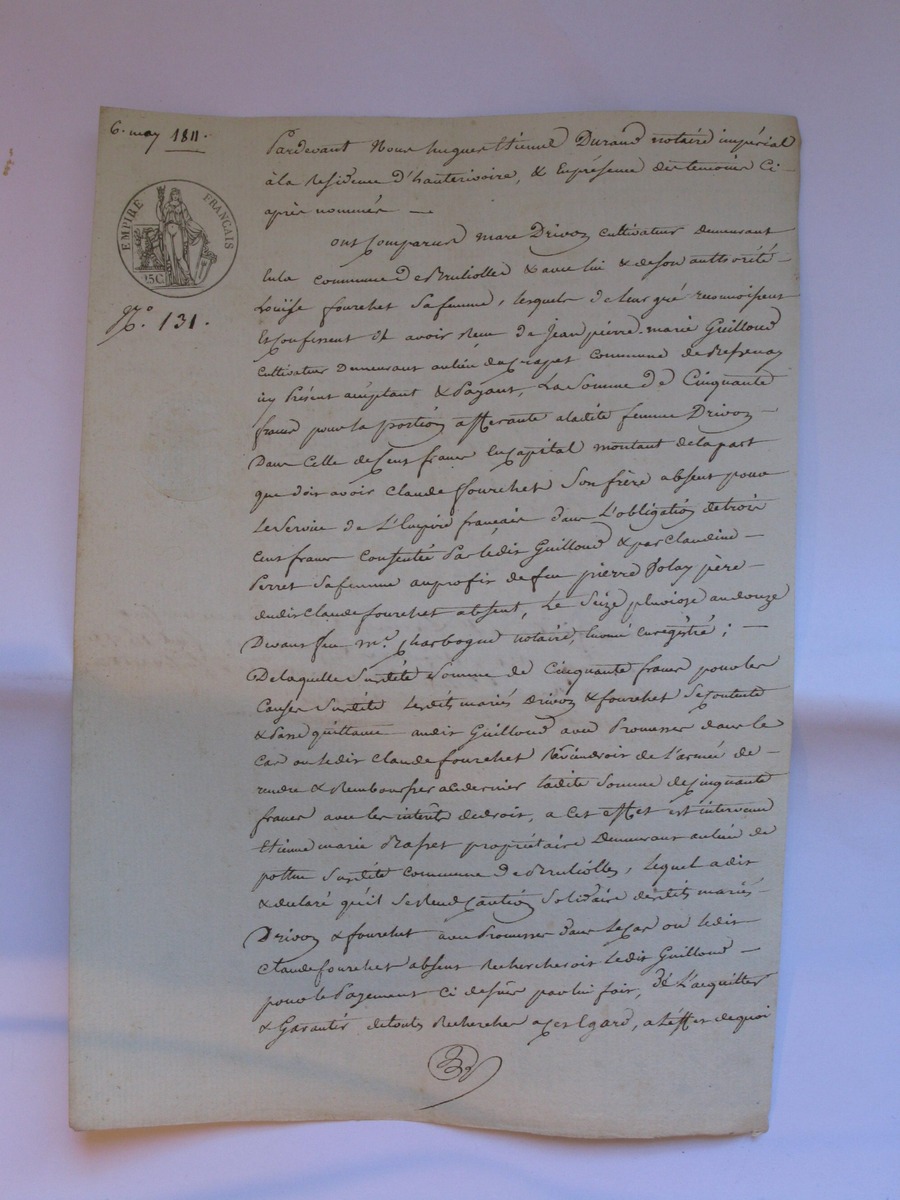 6. may 1811.
EMPIRE FRANÇAIS
25C
N.º 131.
Pardevant Nous hugues Etienne Durand notaire impérial
à la residence d'hauterivoire, & En présence des temoins Ci-
après nommés —
ont Comparus marc Drivon cultivateur demeurant
en la commune de Brullioles & avec lui & de son authorité -
Louise fourchet sa femme, lesquels de leur gré reconnoissent
et Confessent avoir Reçu de Jean pierre-marie Guilloud
cultivateur Demeurant au lieu du commune de
icy Présent acceptant & Payant, La Somme de Cinquante
francs pour la portion afferante a ladite femme Drivon -
Dans Celle de Cent francs en Capital montant de la part
que doit avoir Claude fourchet Son frère absent pour
le Service de L'Empire français dans L'obligation de trois
Cent francs Consentée Par ledit Guilloud & par Claudine -
Perret sa femme au profit de feu pierre père -
dudit Claude fourchet absent, Le Seize pluviose an douze
Devant feu m.e Charbogne notaire, enregistré ; —
De laquelle Susdite Somme de Cinquante francs pour les
Causes Susdite Lesdits mariés Drivon & fourchet Se contente
& Passe quittance audit Guilloud avec Promesses dans le
Cas ou ledit Claude fourchet Reviendroit de l'armée de -
rendre & Rembourser a ce dernier ladite Somme de Cinquante
francs avec les interêts de droit, a Cet effet est intervenu
Etienne marie propriétaire Demeurant au lieu de
Susdite Commune de Brullioles, Lequel a dit
& declaré qu'il Se Rend Caution Solidaire desdits mariés -
Drivon & fourchet avec Promesses dans Le Cas ou ledit
Claude fourchet absent Rechercheroit Ledit Guilloud -
pour le Payement Ci dessus par lui fait, de L'acquitter
& Garantir de toute Recherches a Cet Egard, a L'effet de quoi